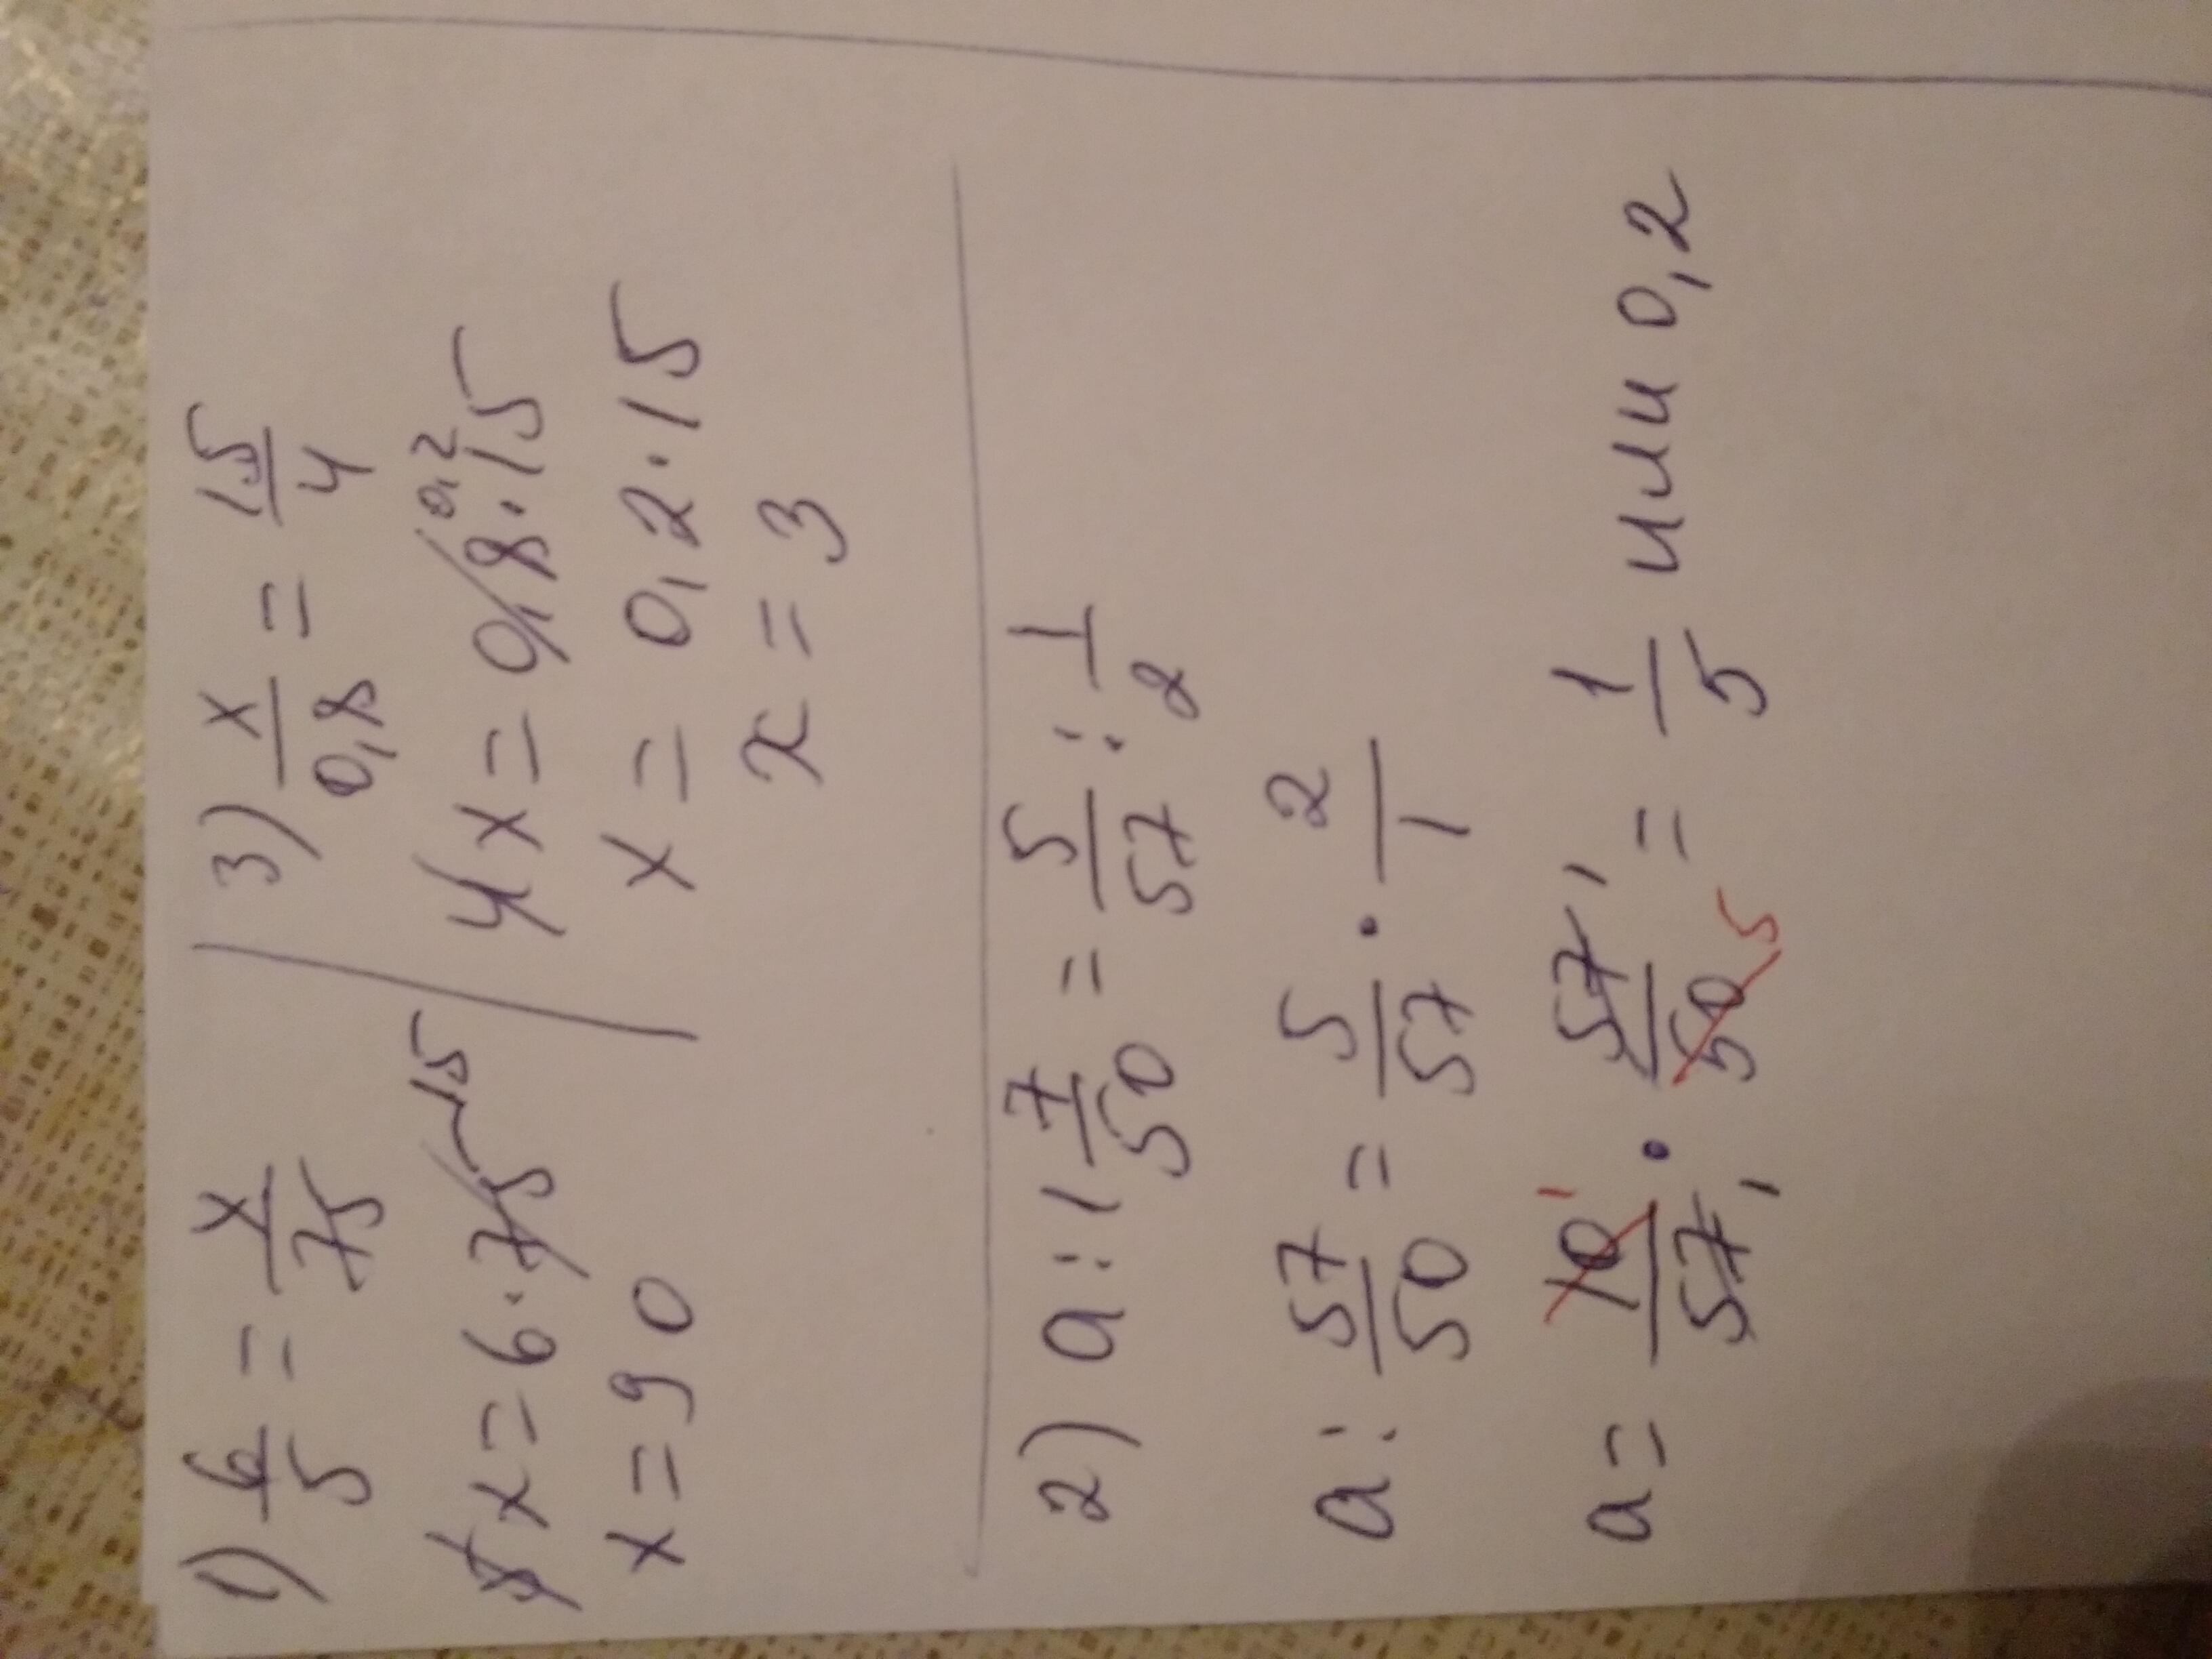 1) 6/5 = x/75
5x = 6 · 75 15
x = 90
3) x/0,8 = 15/4
4x = 0,8 0,2 · 15
x = 0,2 · 15
x = 3
2) a : 1 7/50 = 5/57 : 1/2
a : 57/50 = 5/57 · 2/1
a = 10 1/57 1 · 57 1/50 5 = 1/5 или 0,2